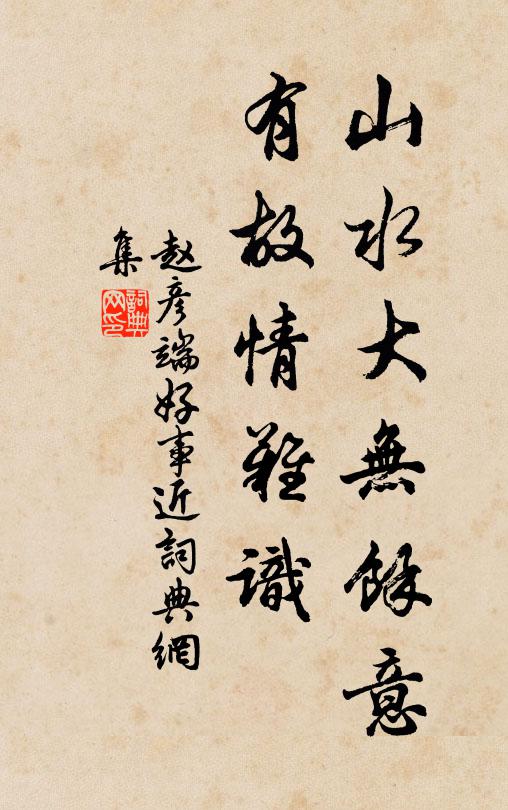 山水大無餘意
有故情難識
赵彦端好事近詞典網
集
詞典
网印